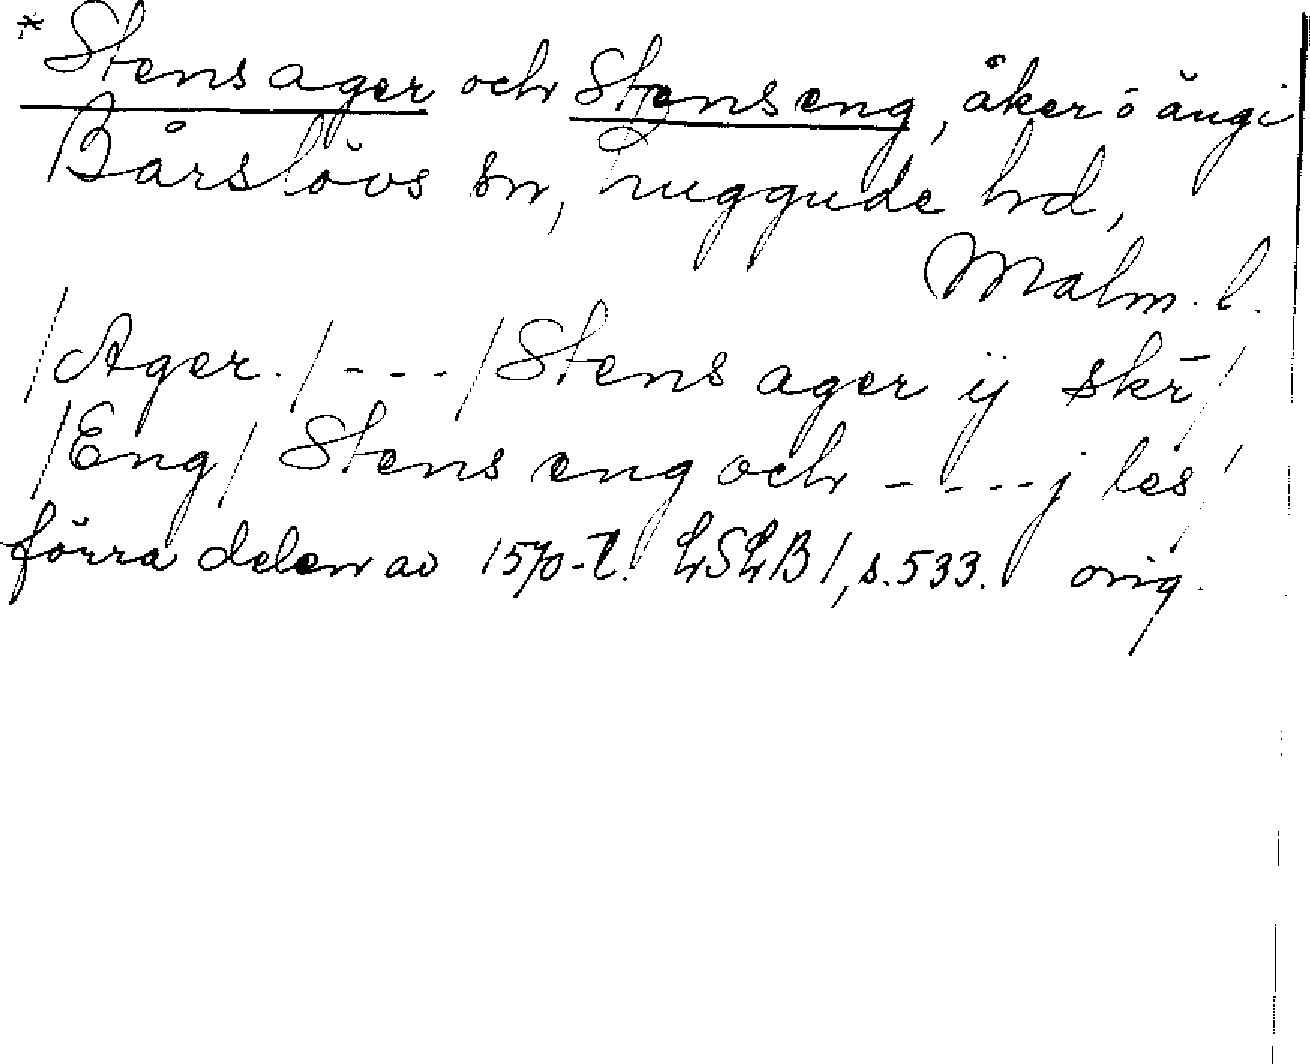 * Stens ager och Stens eng, åker o äng i
Bårslövs sn, Luggude hd,
Malm. l.
/Ager./ --- /Stens ager ij skr̄/
/Eng/ Stens eng och ----j les/
förra delen av 1570-t. LSLB 1, s. 533. orig.